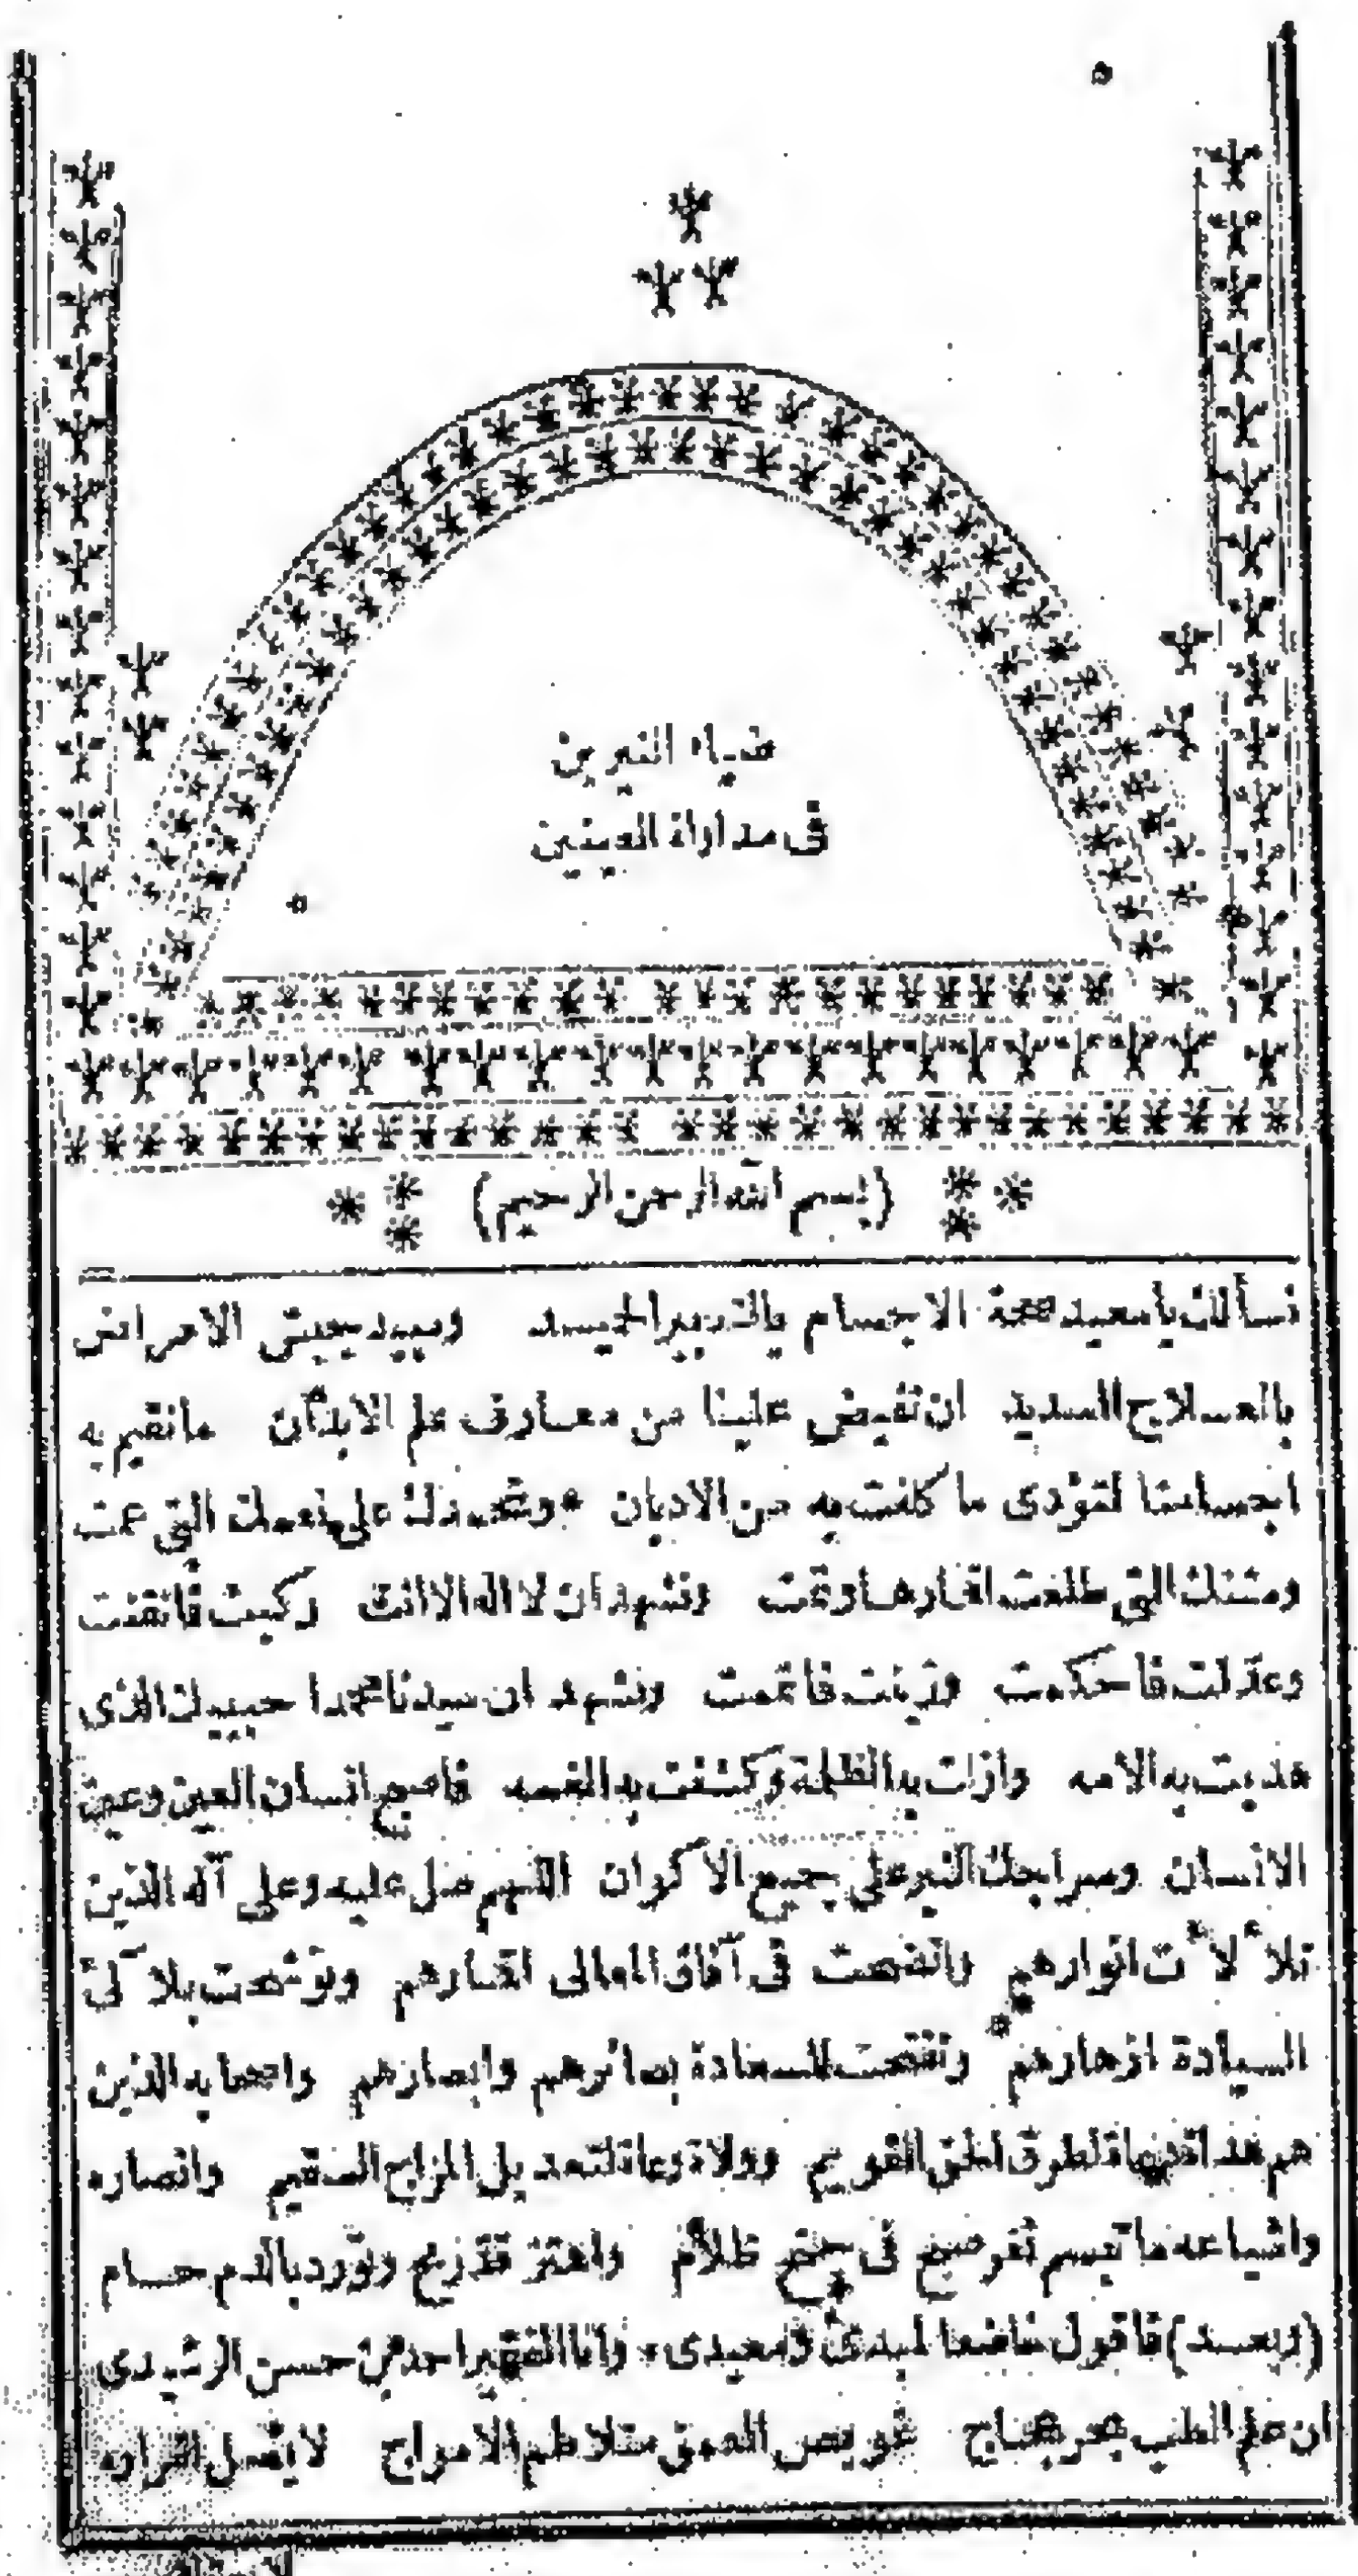 ضياء النيرين
فى مداواة العينين
(بسم الله الرحمن الرحيم)
نسألك يا معيد صحة الاجسام بالتدبير الحميد ومبيد جيش الامراض
بالعلاج السديد ان تفيض علينا من معارف علم الابدان ما نقيم به
اجسامنا لنؤدى ما كلفت به من الاديان ونحمدك على نعمك التى عمت
ومننك التى طلعت اقمارها وتمت ونشهد ان لا اله الا انت ركبت فاتقنت
وعدلت فاحكمت وزينت فاتممت ونشهد ان سيدنا محمدا حبيبك الذى
هديت به الامه وازلت به الظلمة وكشفت به الغمه فاصبح انسان العين وعين
الانسان وسراجك النير على جميع الاكوان اللهم صل عليه وعلى آله الذين
تلا ًلا ًت انوارهم واتضحت فى آفاق المعالى اقمارهم وتوشحت بلا ٓلئ
السيادة ازهارهم وتفتحت للسعادة بصائرهم وابصارهم واصحابه الذين
هم هداة دعاة لطرق الحق القويم وولاة رعاة لتعديل المزاج السقيم وانصاره
واشياعه ما تبسم ثغر صبح فى جنح ظلام واهتز قد رمح وتورد بالدم حسام
(وبعد) فاقول خاضعا لمبدئ ومعيدى وانا الفقير احمد بن حسن الرشيدى
ان علم الطب بحر عجاج غويص العمق متلاطم الامواج لا يصل لقراره